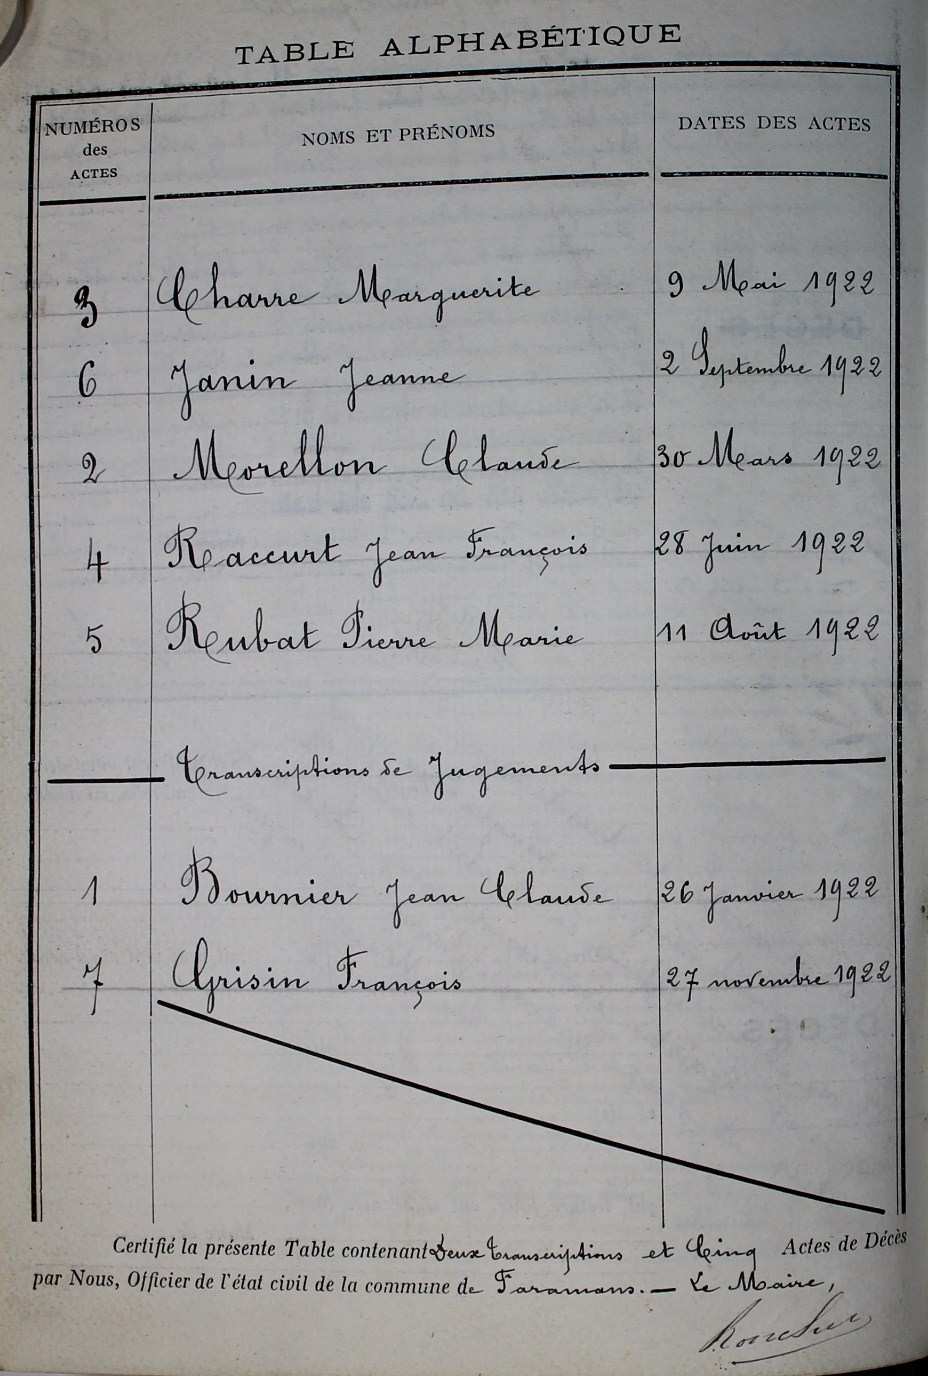 TABLE ALPHABÉTIQUE
NUMÉROS des ACTES
NOMS ET PRÉNOMS
DATES DES ACTES
3 Charre Marguerite 9 Mai 1922
6 Janin Jeanne 2 Septembre 1922
2 Morellon Claude 30 Mars 1922
4 Raccurt Jean François 28 Juin 1922
5 Rubat Pierre Marie 11 Août 1922
Transcriptions de Jugements
1 Bournier Jean Claude 26 Janvier 1922
7 Grisin François 27 novembre 1922
Certifié la présente Table contenant Deux Transcriptions et Cinq Actes de Décès
par Nous, Officier de l'état civil de la commune de Faramans. — Le Maire,